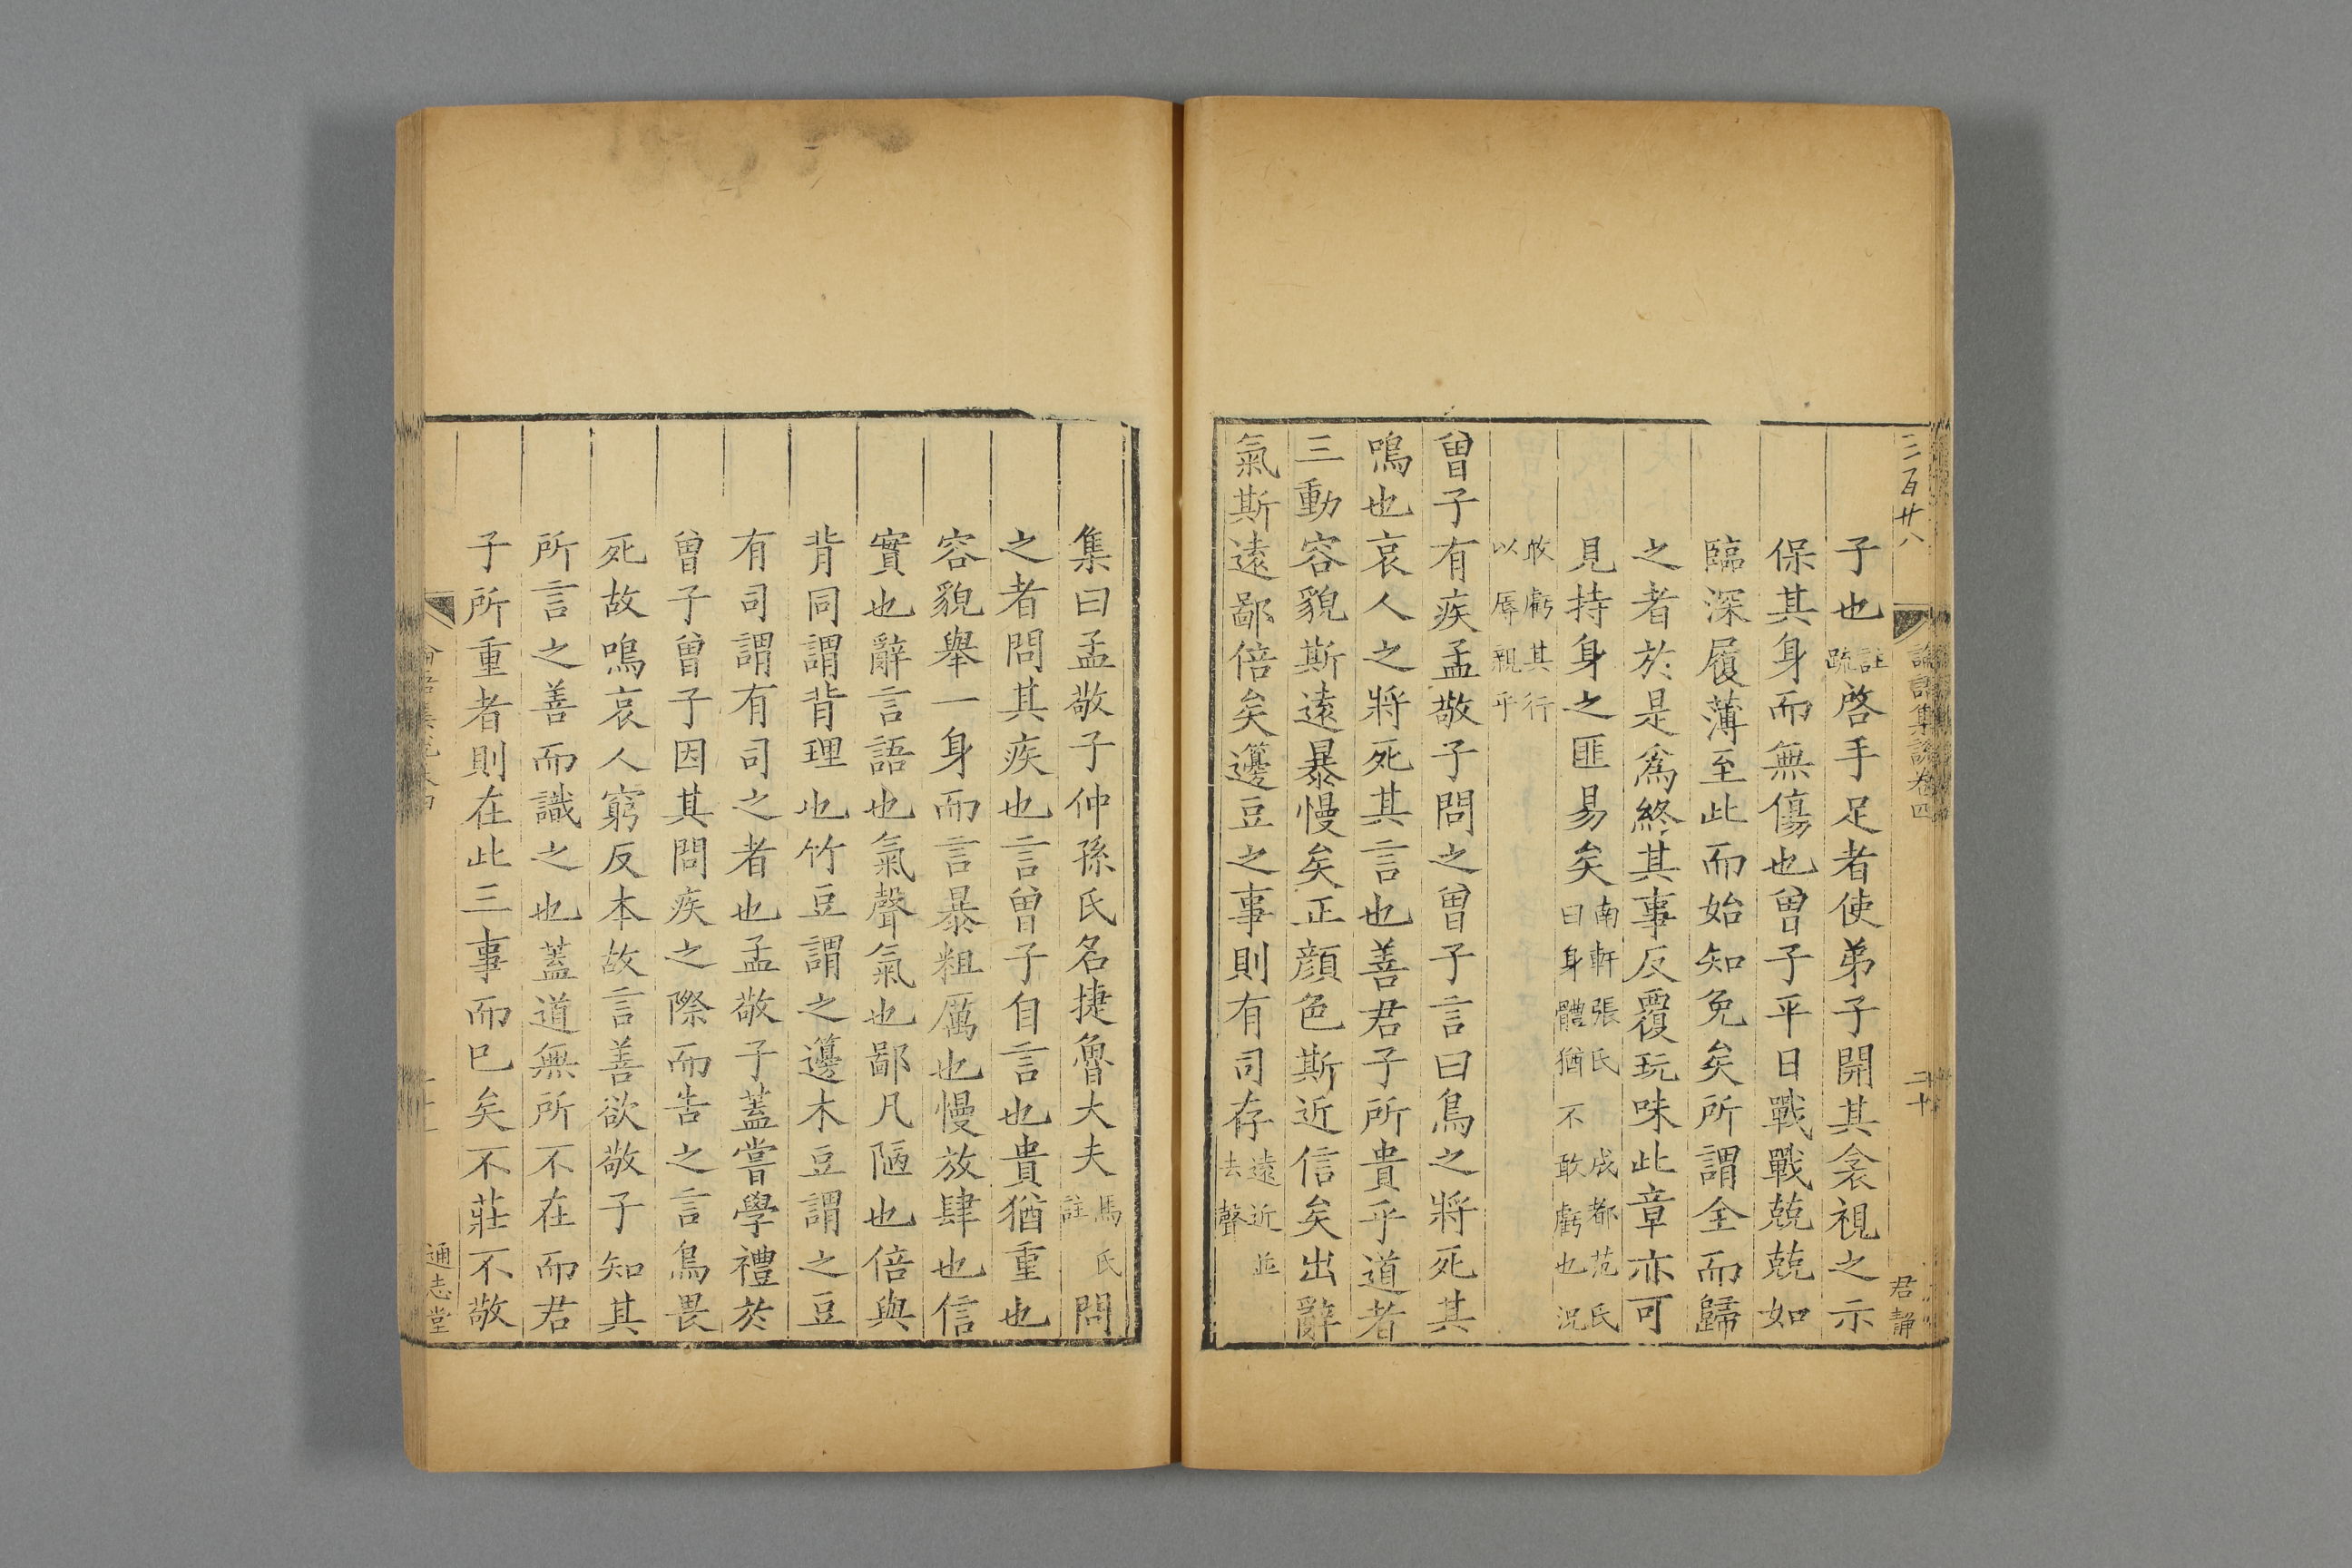 三百廿八 論語集說卷四 二十 君靜
子也註疏啓手足者使弟子開其衾視之示
保其身而無傷也曾子平日戰戰兢兢如
臨深履薄至此而始知免矣所謂全而歸
之者於是爲終其事反覆玩味此章亦可
見持身之匪易矣南軒張氏 成都范氏曰身體猶不敢虧也況
敢虧其行以辱親乎
曾子有疾孟敬子問之曾子言曰鳥之將死其
鳴也哀人之將死其言也善君子所貴乎道者
三動容貌斯遠暴慢矣正顔色斯近信矣出辭
氣斯遠鄙倍矣籩豆之事則有司存遠近並去聲
集曰孟敬子仲孫氏名捷魯大夫馬氏註問
之者問其疾也言曾子自言也貴猶重也
容貌舉一身而言暴粗厲也慢放肆也信
實也辭言語也氣聲氣也鄙凡陋也倍與
背同謂背理也竹豆謂之籩木豆謂之豆
有司謂有司之者也孟敬子蓋嘗學禮於
曾子曾子因其問疾之際而告之言鳥畏
死故鳴哀人窮反本故言善欲敬子知其
所言之善而識之也蓋道無所不在而君
子所重者則在此三事而已矣不莊不敬
通志堂